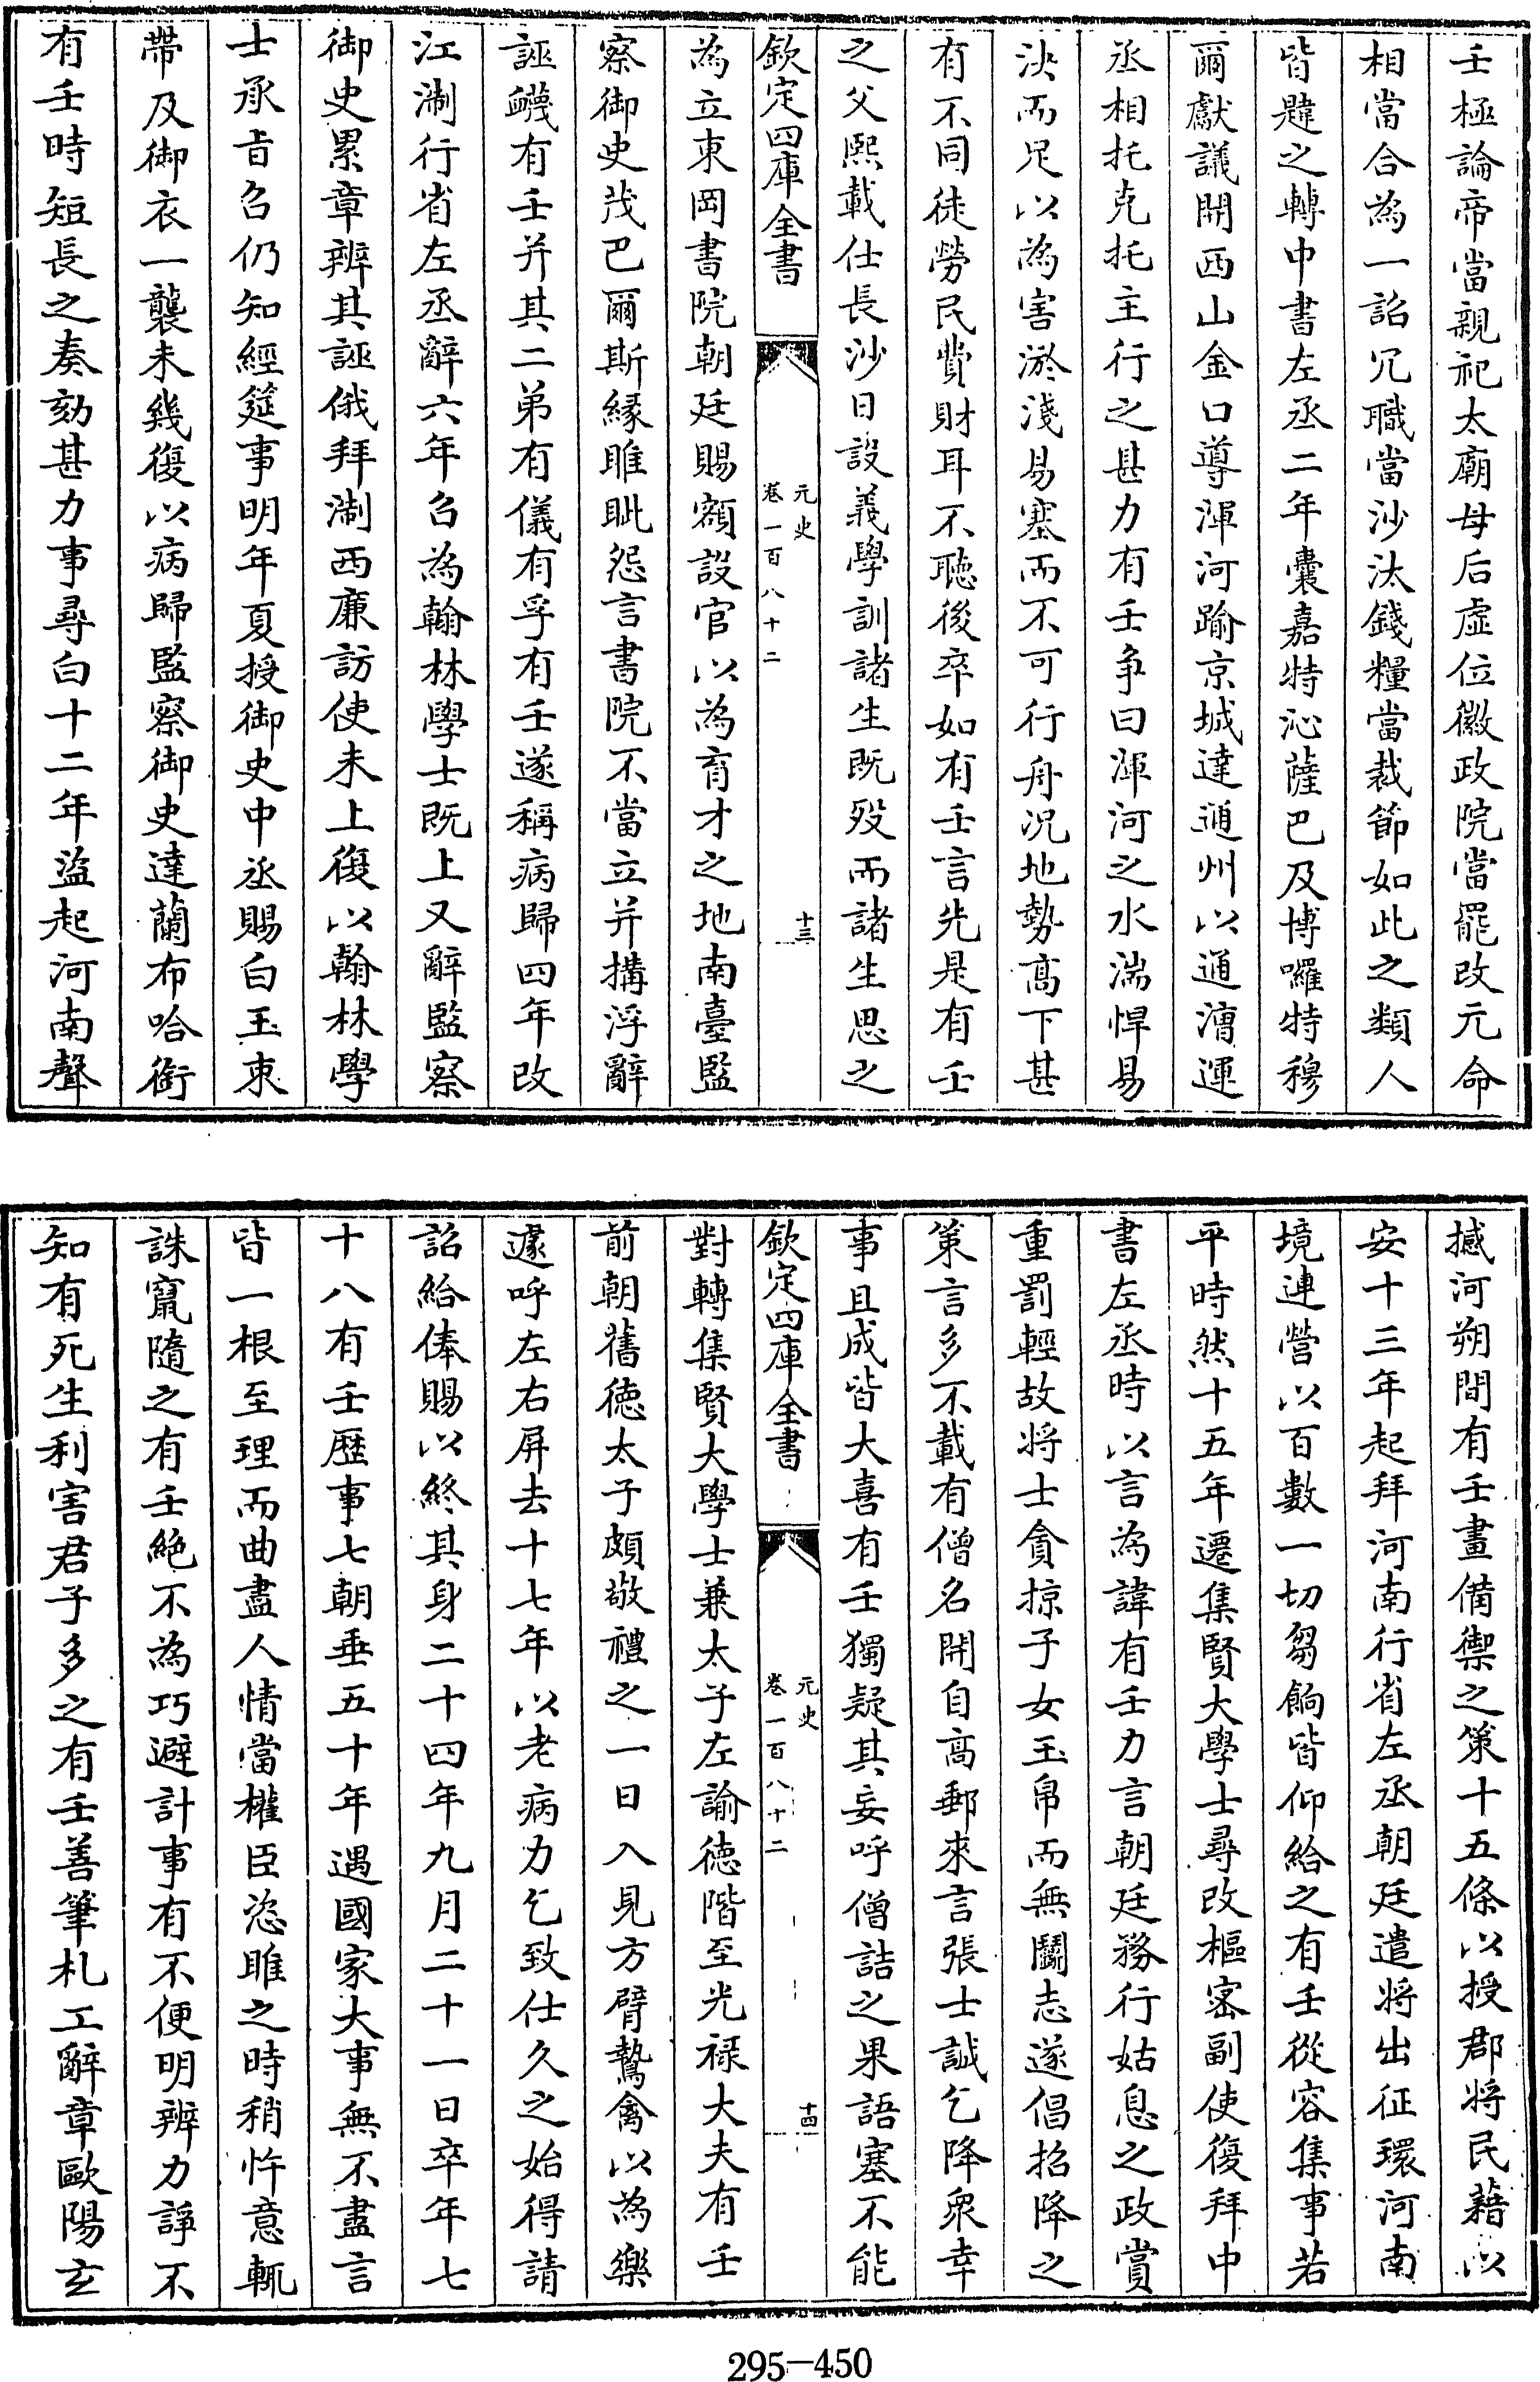 壬極論帝當親祀太廟母后虛位徽政院當罷改元命
相當合為一詔冗職當沙汰錢糧當裁節如此之類人
皆韙之轉中書左丞二年囊嘉特沁薩巴及博囉特穆
爾獻議開西山金口導渾河踰京城達通州以通漕運
丞相托克托主行之甚力有壬争曰渾河之水湍悍易
決而足以為害淤淺易塞而不可行舟况地勢高下甚
有不同徒勞民費財耳不聽後卒如有壬言先是有壬
之父熙載仕長沙日設義學訓諸生既歿而諸生思之
欽定四庫全書
元史
卷一百八十二
十三
為立東岡書院朝廷賜額設官以為育才之地南臺監
察御史茂巴爾斯縁睢眦怨言書院不當立并搆浮辭
誣衊有壬并其二弟有儀有孚有壬遂稱病歸四年改
江淛行省左丞辭六年召為翰林學士既上又辭監察
御史累章辨其誣俄拜淛西亷訪使未上復以翰林學
士承㫖召仍知經筵事明年夏授御史中丞賜白玉束
帶及御衣一襲未幾復以病歸監察御史達蘭布哈銜
有壬時短長之奏劾甚力事尋白十二年盜起河南聲
撼河朔間有壬畫備禦之策十五條以授郡將民藉以
安十三年起拜河南行省左丞朝廷遣將出征環河南
境連營以百數一切芻餉皆仰給之有壬從容集事若
平時然十五年遷集賢大學士尋改樞密副使復拜中
書左丞時以言為諱有壬力言朝廷務行姑息之政賞
重罰輕故將士貪掠子女玉帛而無鬭志遂倡招降之
策言多不載有僧名開自高郵來言張士誠乞降眾幸
事且成皆大喜有壬獨疑其妄呼僧詰之果語塞不能
欽定四庫全書
元史
卷一百八十二
十四
對轉集賢大學士兼太子左諭徳階至光祿大夫有壬
前朝舊徳太子頗敬禮之一日入見方臂鷙禽以為樂
遽呼左右屏去十七年以老病力乞致仕久之始得請
詔給俸賜以終其身二十四年九月二十一日卒年七
十八有壬歷事七朝垂五十年遇國家大事無不盡言
皆一根至理而曲盡人情當權臣恣睢之時稍忤意輒
誅竄隨之有壬絶不為巧避計事有不便明辨力諍不
知有死生利害君子多之有壬善筆札工辭章歐陽玄
295-450